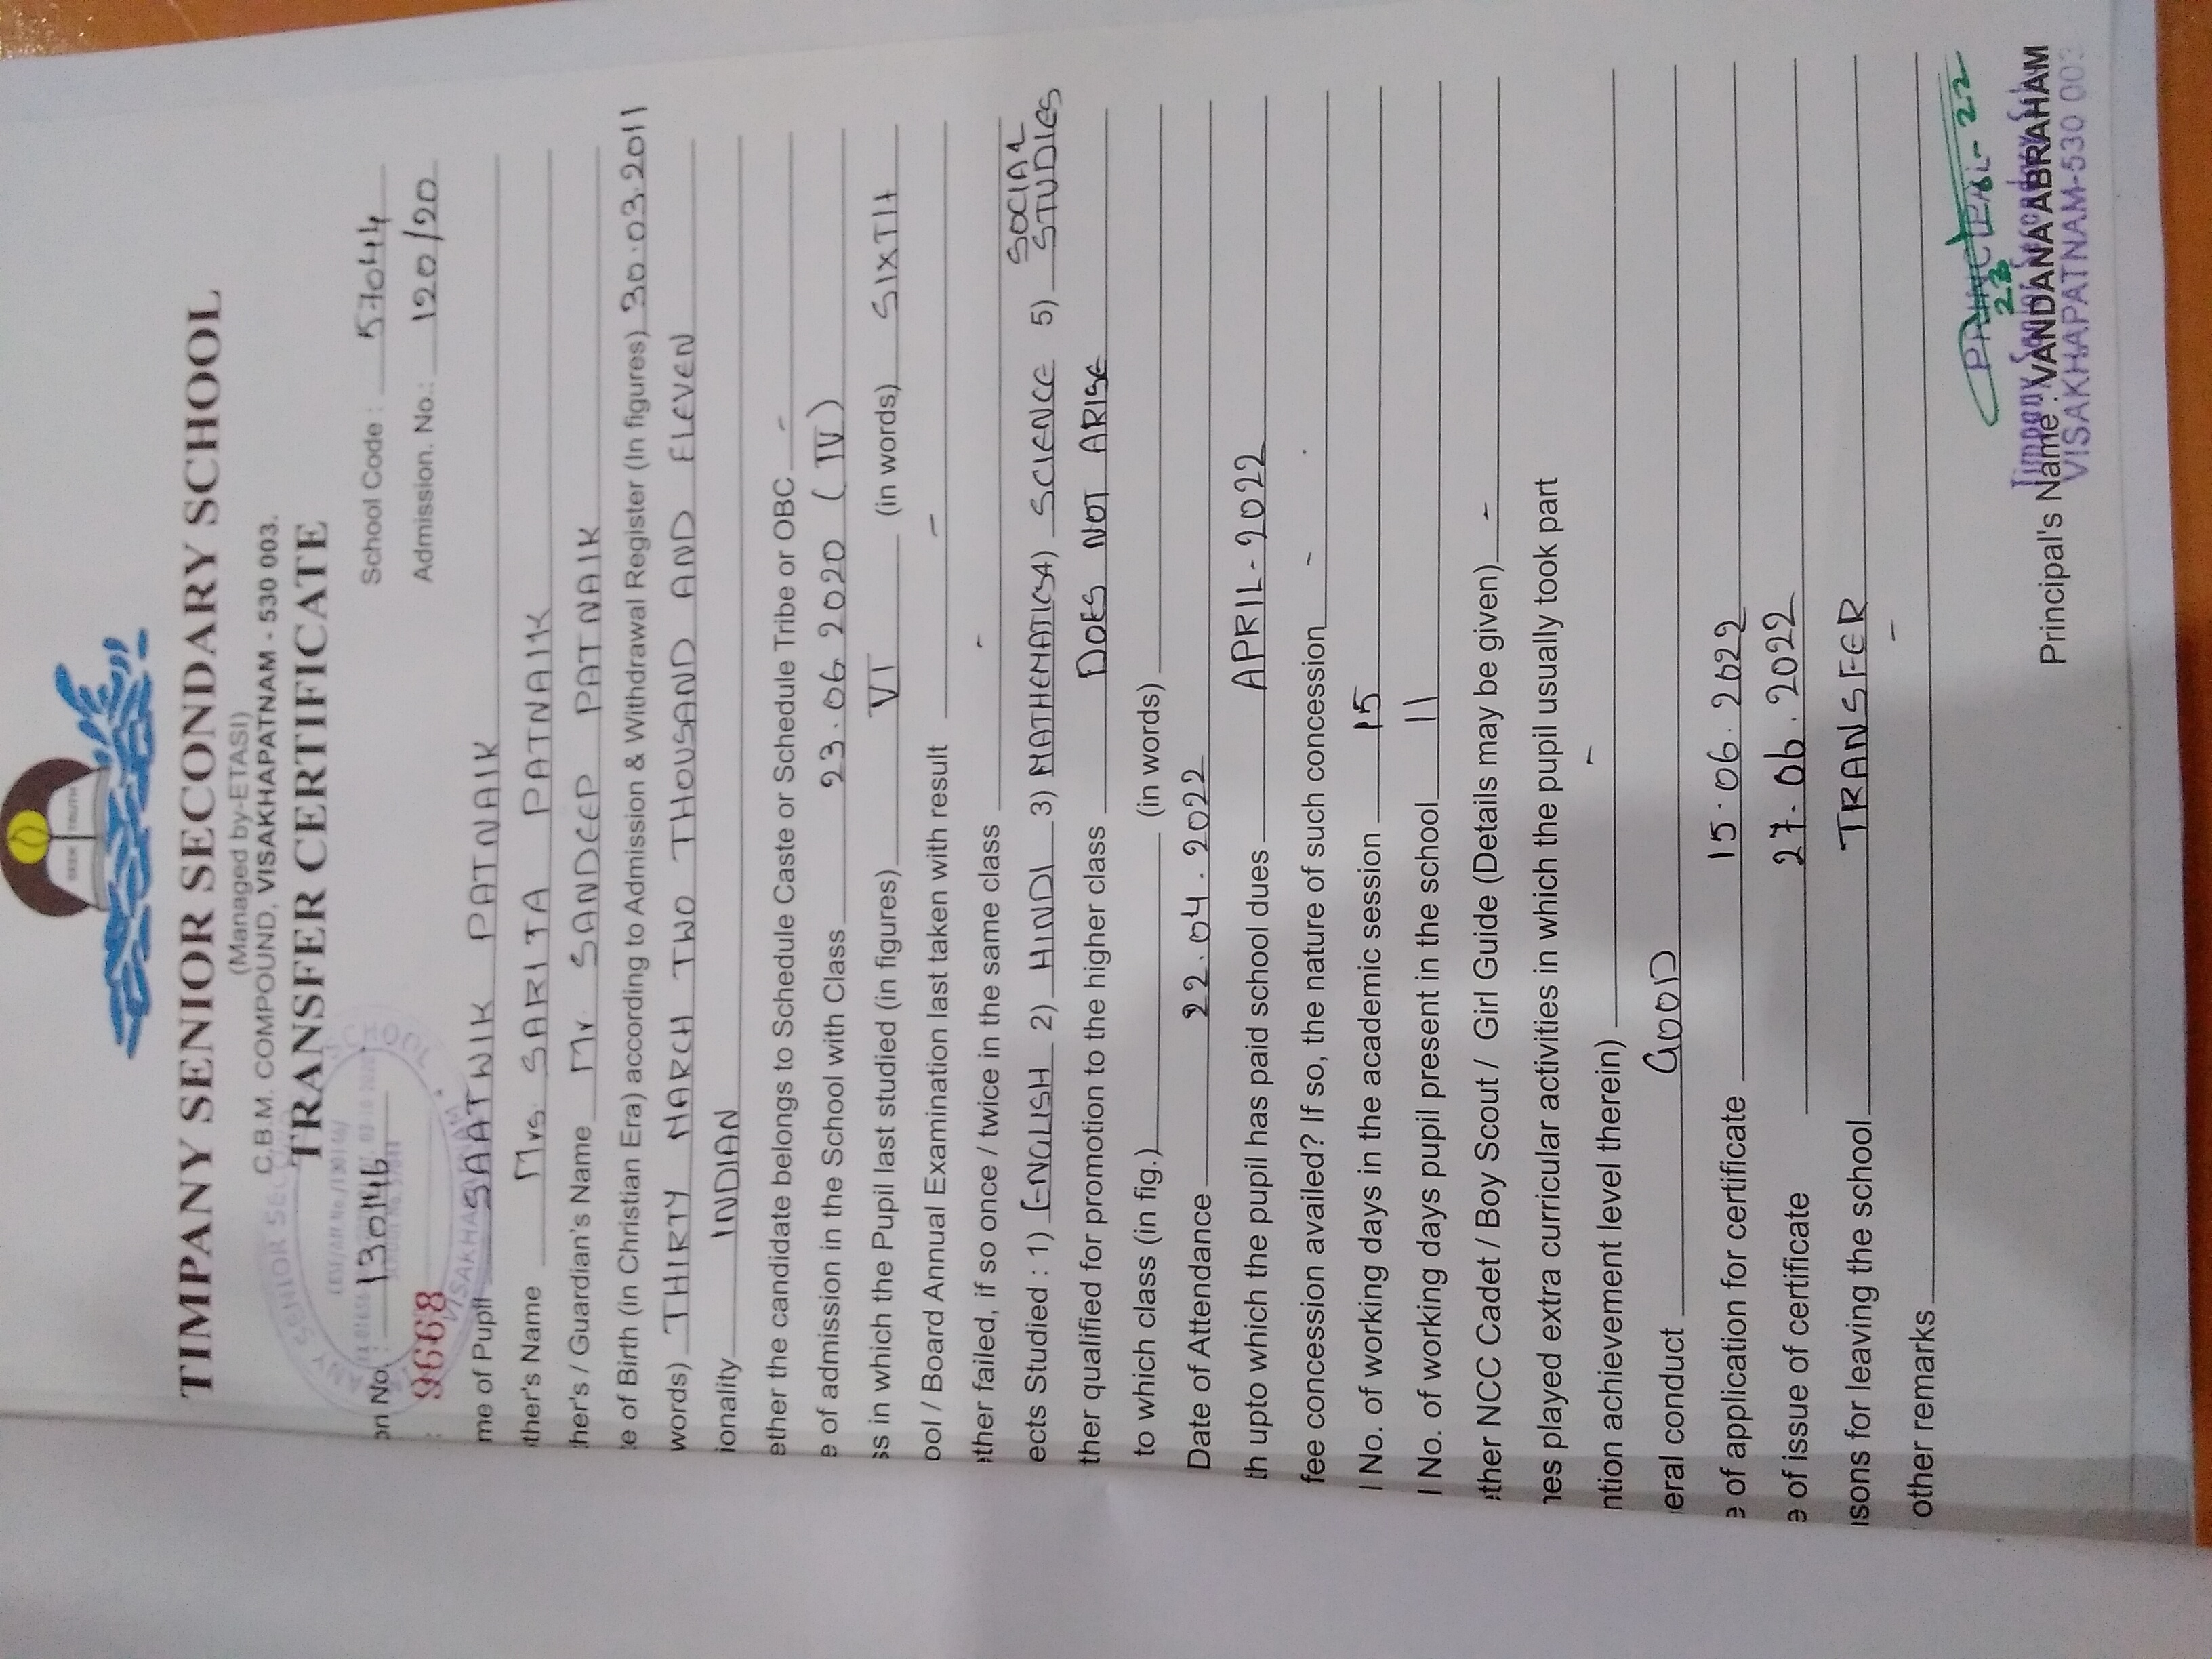 SEEK TRUTH
TIMPANY SENIOR SECONDARY SCHOOL
(Managed by-ETASI)
C.B.M. COMPOUND, VISAKHAPATNAM - 530 003.
TRANSFER CERTIFICATE
on No. : 130146 School Code : 57044
: 9668 Admission. No.: 120/20
me of Pupil SAATWIK PATNAIK
ther's Name Mrs. SARITA PATNAIK
her's / Guardian's Name Mr. SANDEEP PATNAIK
te of Birth (in Christian Era) according to Admission & Withdrawal Register (In figures) 30.03.2011
words) THIRTY MARCH TWO THOUSAND AND ELEVEN
ionality INDIAN
ether the candidate belongs to Schedule Caste or Schedule Tribe or OBC -
e of admission in the School with Class 23.06.2020 (IV)
ss in which the Pupil last studied (in figures) VI (in words) SIXTH
ool / Board Annual Examination last taken with result -
ther failed, if so once / twice in the same class -
ects Studied : 1) ENGLISH 2) HINDI 3) MATHEMATICS 4) SCIENCE 5) SOCIAL STUDIES
ther qualified for promotion to the higher class DOES NOT ARISE
to which class (in fig.) (in words)
Date of Attendance 22.04.2022
th upto which the pupil has paid school dues APRIL-2022
fee concession availed? If so, the nature of such concession -
l No. of working days in the academic session 15
l No. of working days pupil present in the school 11
ther NCC Cadet / Boy Scout / Girl Guide (Details may be given) -
nes played extra curricular activities in which the pupil usually took part
ntion achievement level therein) -
eral conduct GOOD
e of application for certificate 15.06.2022
e of issue of certificate 27.06.2022
sons for leaving the school TRANSFER
other remarks -
PRINCIPAL
Principal's Name : VANDANA ABRAHAM
VISAKHAPATNAM-530 003